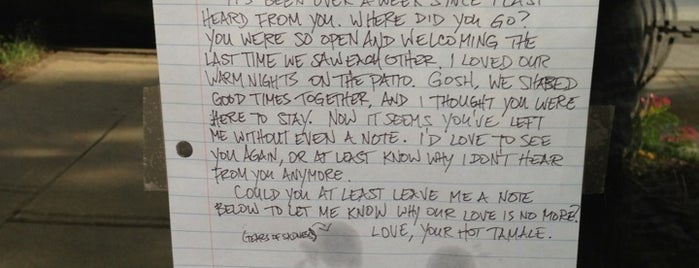 IT'S BEEN OVER A WEEK SINCE I LAST
HEARD FROM YOU. WHERE DID YOU GO?
YOU WERE SO OPEN AND WELCOMING THE
LAST TIME WE SAW EACH OTHER. I LOVED OUR
WARM NIGHTS ON THE PATIO. GOSH, WE SHARED
GOOD TIMES TOGETHER, AND I THOUGHT YOU WERE
HERE TO STAY. NOW IT SEEMS YOU'VE LEFT
ME WITHOUT EVEN A NOTE. I'D LOVE TO SEE
YOU AGAIN, OR AT LEAST KNOW WHY I DON'T HEAR
FROM YOU ANYMORE.
COULD YOU AT LEAST LEAVE ME A NOTE
BELOW TO LET ME KNOW WHY OUR LOVE IS NO MORE?
(TEARS OF SADNESS) LOVE, YOUR HOT TAMALE.